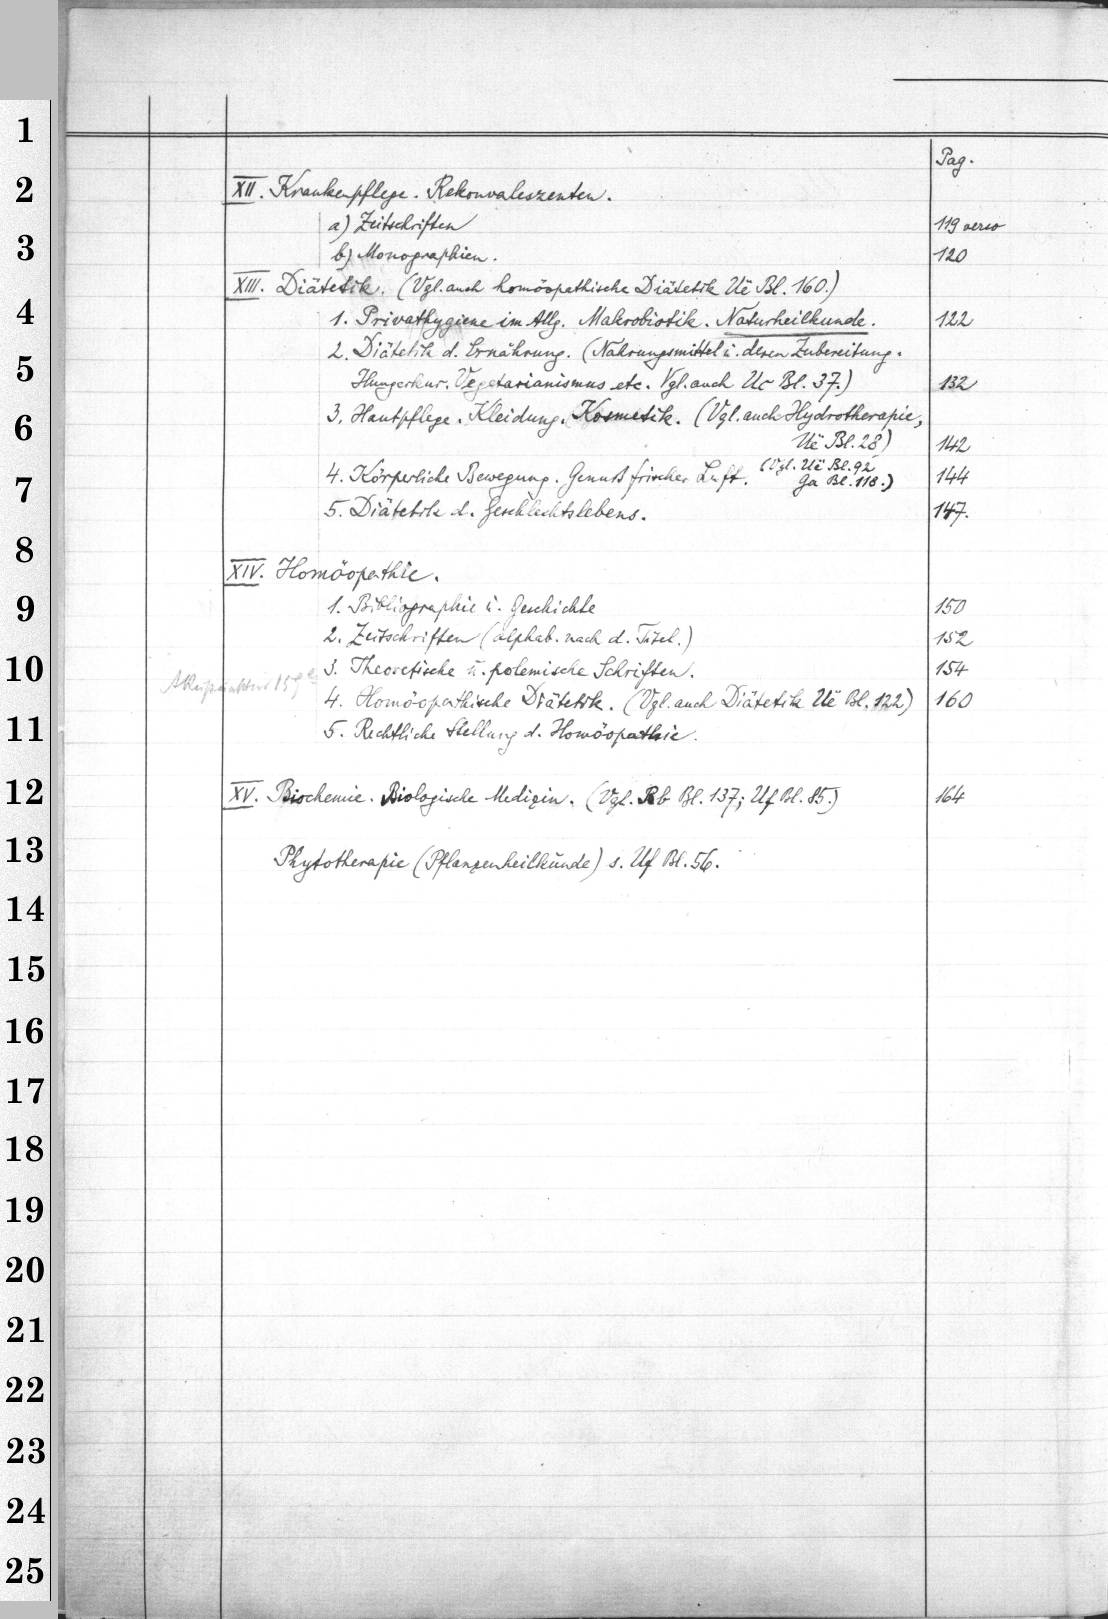 Pag.
XII. Krankenpflege. Rekonvaleszenten.
a) Zeitschriften 119 verso
b) Monographien. 120
XIII. Diätetik. (Vgl. auch homöopathische Diätetik Uë Bl. 160.)
1. Privathygiene im Allg. Makrobiotik. Naturheilkunde. 122
2. Diätetik d. Ernährung. (Nahrungsmittel u. deren Zubereitung.
Hungerkur. Vegetarianismus etc. Vgl. auch Uc Bl. 37.) 132
3. Hautpflege. Kleidung. Kosmetik. (Vgl. auch Hydrotherapie,
Uë Bl. 28) 142
(Vgl. Uë Bl. 92
4. Körperliche Bewegung. Genuß frischer Luft. Ga Bl. 118.) 144
5. Diätetik d. Geschlechtslebens. 147.
XIV. Homöopathie.
1. Bibliographie u. Geschichte 150
2. Zeitschriften (alphab. nach d. Titel.) 152
3. Theoretische u. polemische Schriften. 154
Akupunktur
4. Homöopathische Diätetik. (Vgl. auch Diätetik Uë Bl. 122) 160
5. Rechtliche Stellung d. Homöopathie.
XV. Biochemie. Biologische Medizin. (Vgl. Rb Bl. 137; Uf Bl. 85.) 164
Phytotherapie (Pflanzenheilkunde) s. Uf Bl. 56.
1
2
3
4
5
6
7
8
9
10
11
12
13
14
15
16
17
18
19
20
21
22
23
24
25